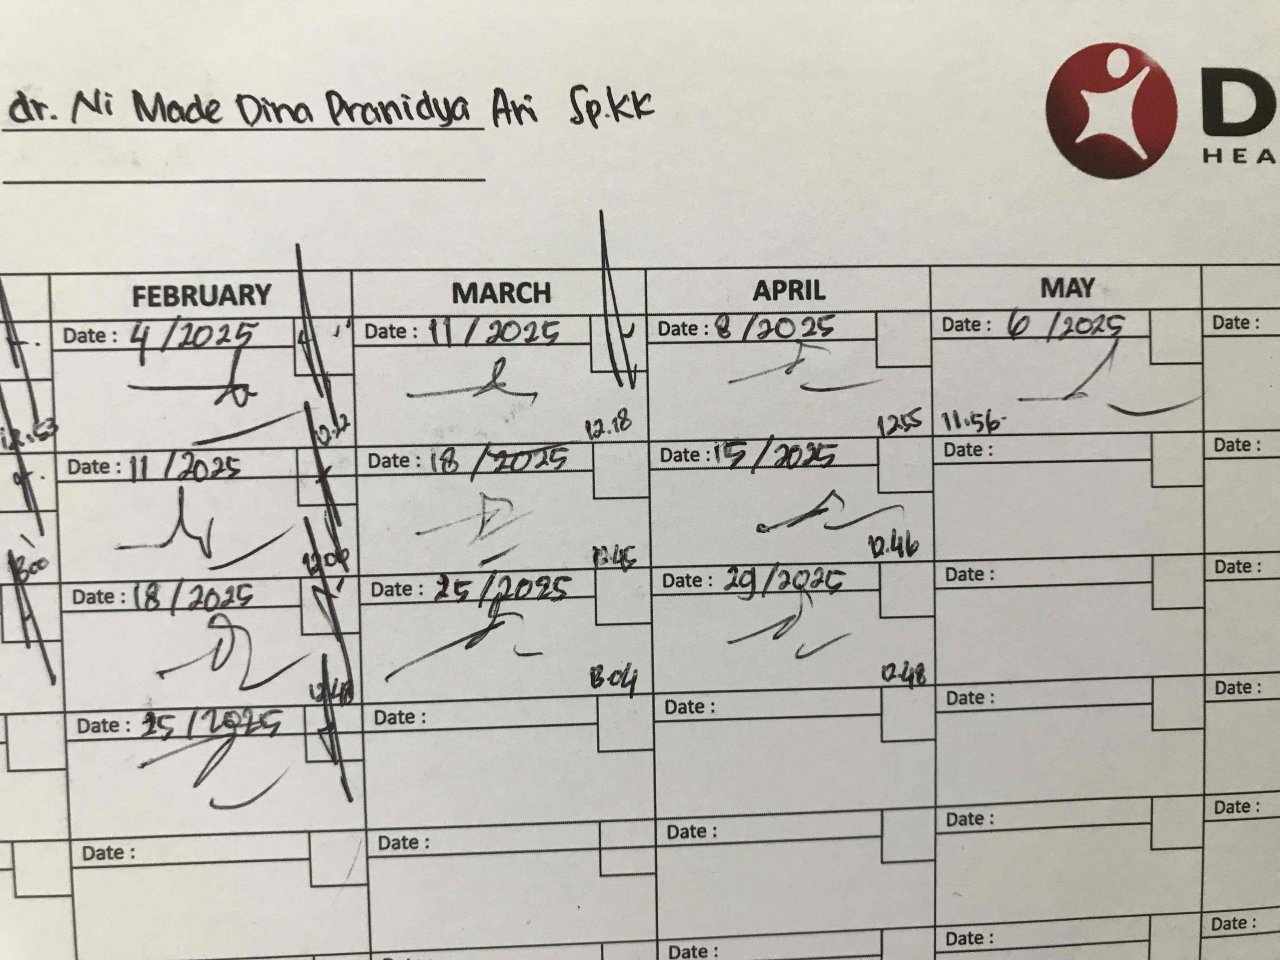 dr. Ni Made Dina Pranidya Ari Sp.KK
D
HEA
FEBRUARY MARCH APRIL MAY
Date : 4 /2025 Date : 11 / 2025 Date : 8 /2025 Date : 6 /2025 Date :
12.53 12.22 12.18 12.55 11.56
Date : 11 /2025 Date : 18 /2025 Date : 15 /2025 Date : Date :
13.00 12.06 12.45 12.46
Date : 18 /2025 Date : 25 /2025 Date : 29/2025 Date : Date :
12.48 13.04 12.48
Date : 25 /2025 Date : Date : Date : Date :
Date : Date : Date : Date : Date :
Date : Date : Date :